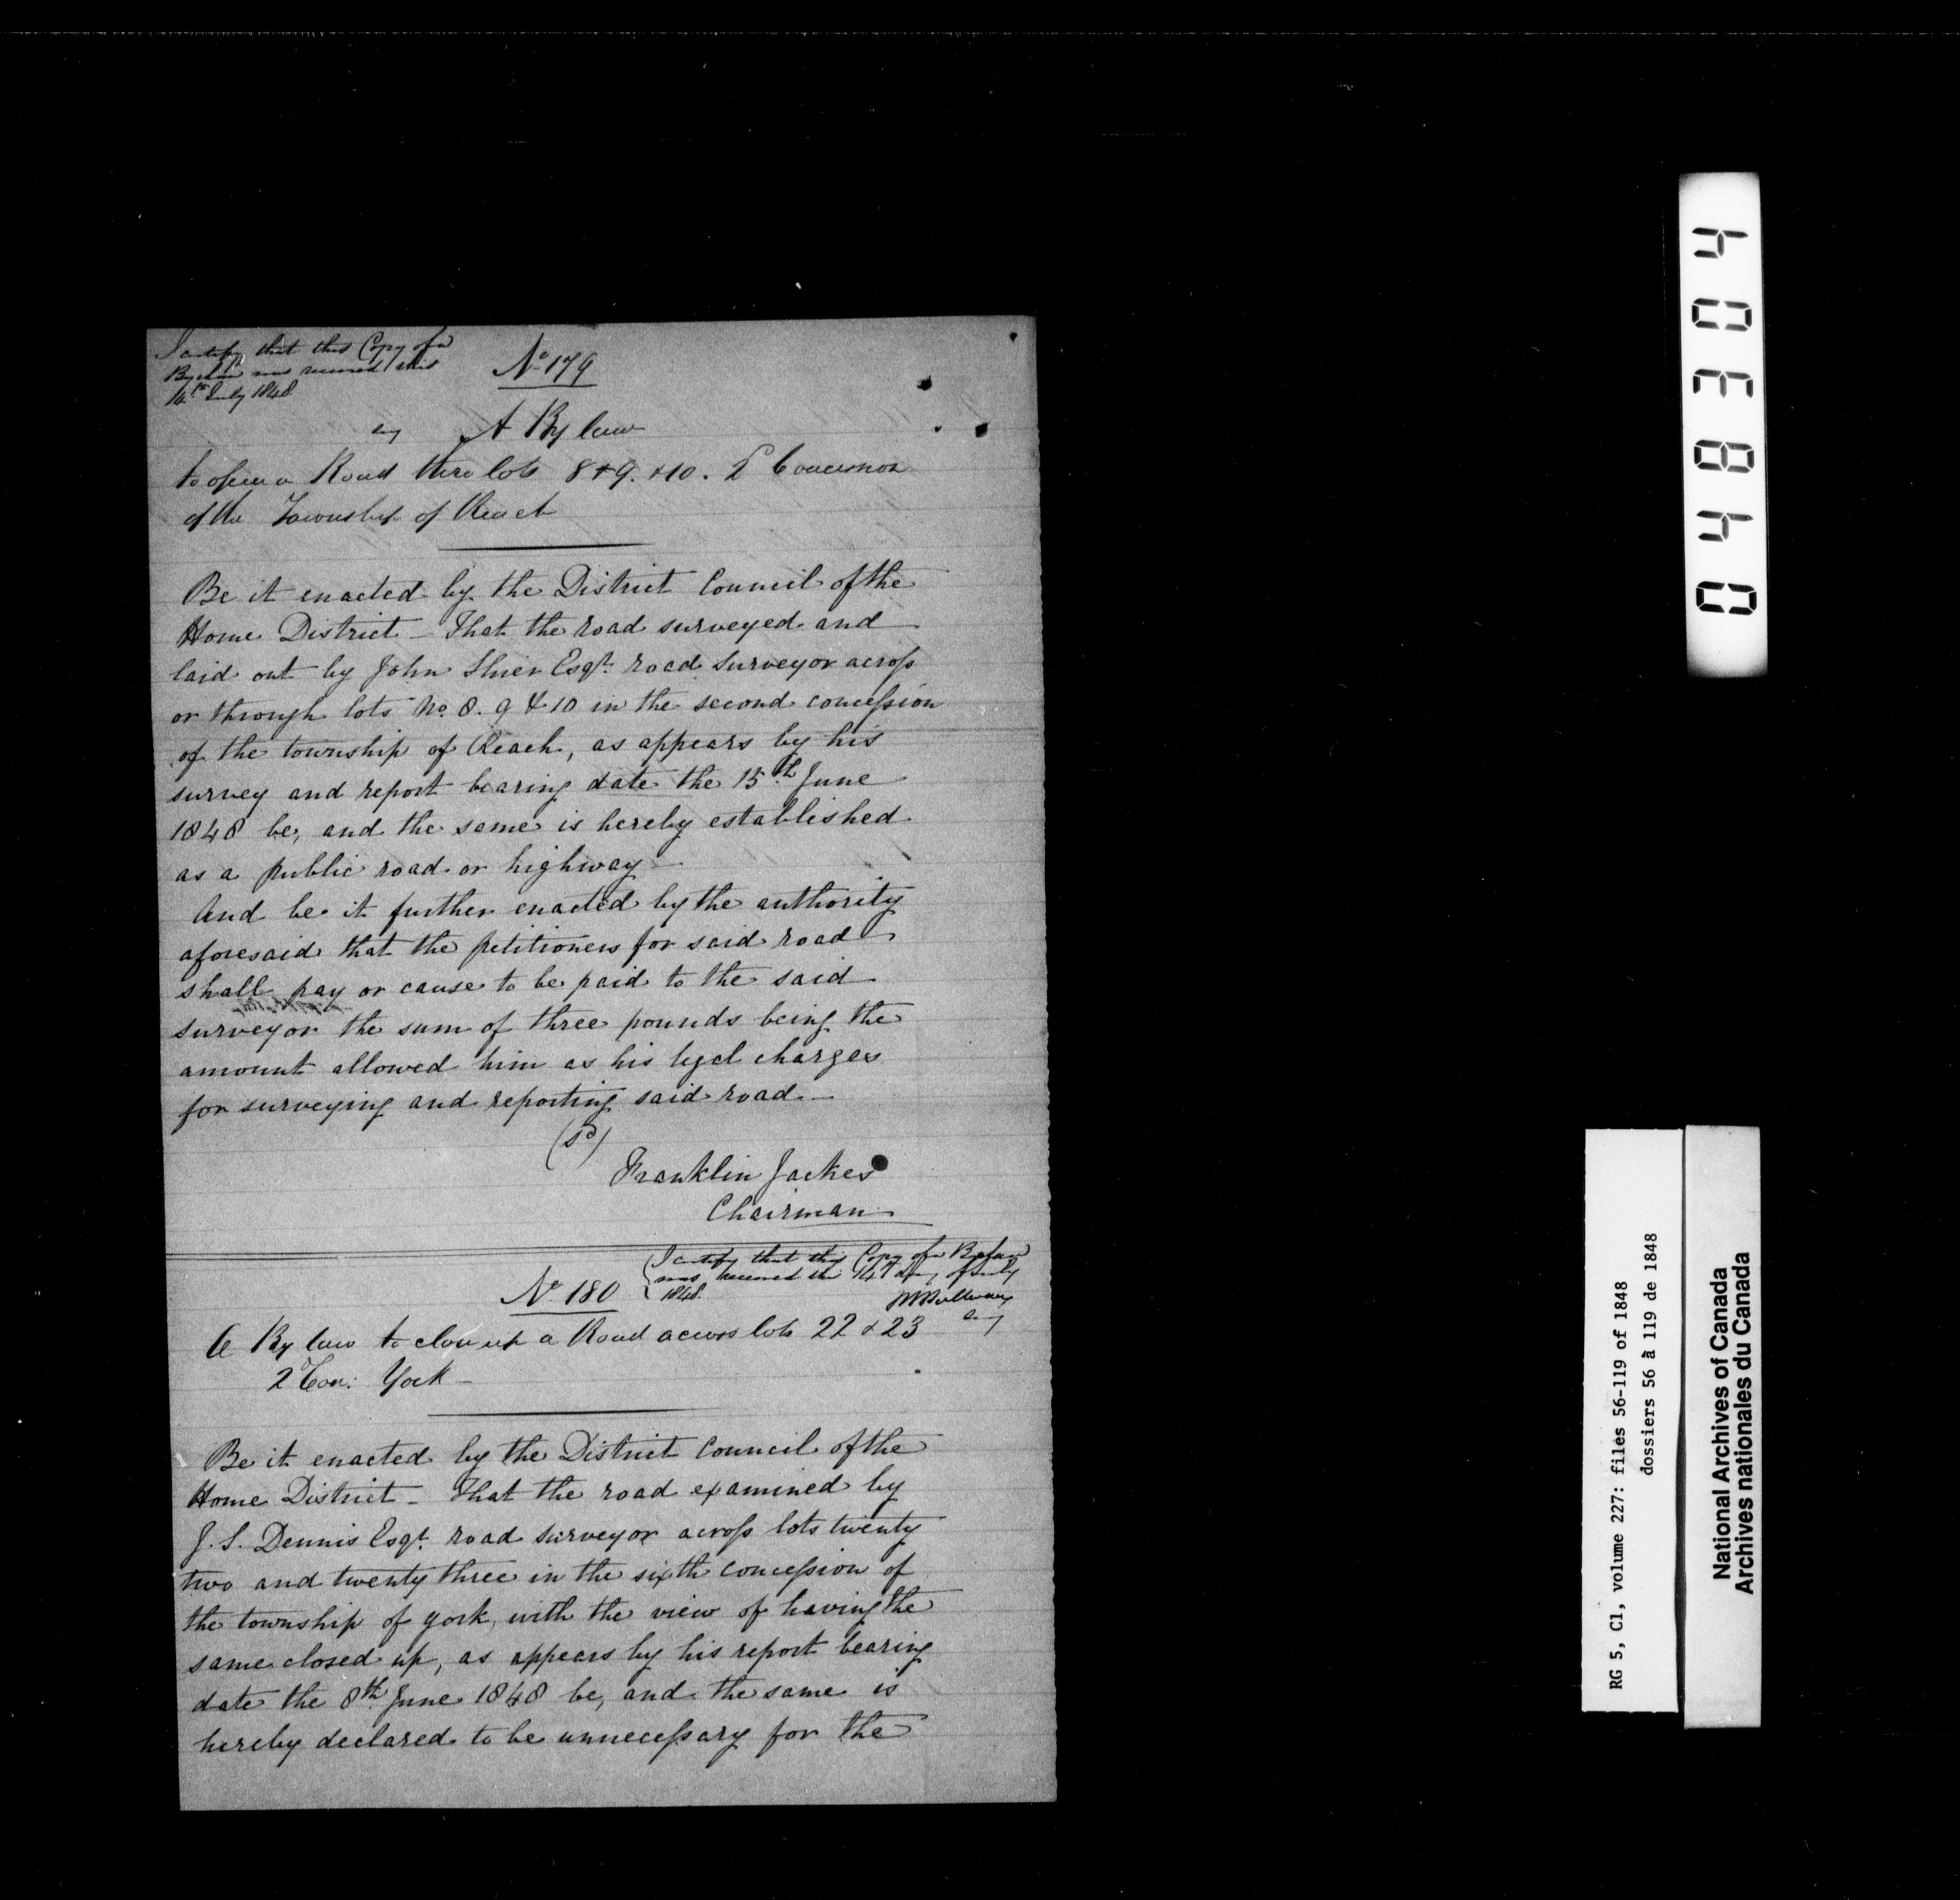 I certify that this Copy of a
By law was received this
14th July 1848
No 179
A By law
to open a Road thro lots 8 & 9. & 10. 2d Concession
of the Township of Reach
Be it enacted by the District Council of the
Home District – That the road surveyed and
laid out by John Shier Esqr. road surveyor across
or through lots No. 8. 9 & 10 in the second concession
of the township of Reach, as appears by his
survey and report bearing date the 15th June
1848 be, and the same is hereby established
as a public road or highway –
And be it further enacted by the authority
aforesaid that the petitioners for said road
shall pay or cause to be paid to the said
surveyor the sum of three pounds being the
amount allowed him as his legal charges
for surveying and reporting said road –
(sd)
Franklin Jackes
Chairman
I certify that this Copy of a By law
was received this 14th day of July
1848.
No 180
A By law to close up a Road across lots 22 & 23
2 Con: York –
Be it enacted by the District Council of the
Home District – That the road examined by
J. S. Dennis Esqr. road surveyor across lots twenty
two and twenty three in the sixth concession of
the township of york, with the view of having the
same closed up, as appears by his report bearing
date the 8th June 1848 be, and the same is
hereby declared to be unnecessary for the
040304
RG 5, C1, volume 227: files 56-119 of 1848
dossiers 56 à 119 de 1848
National Archives of Canada
Archives nationales du Canada